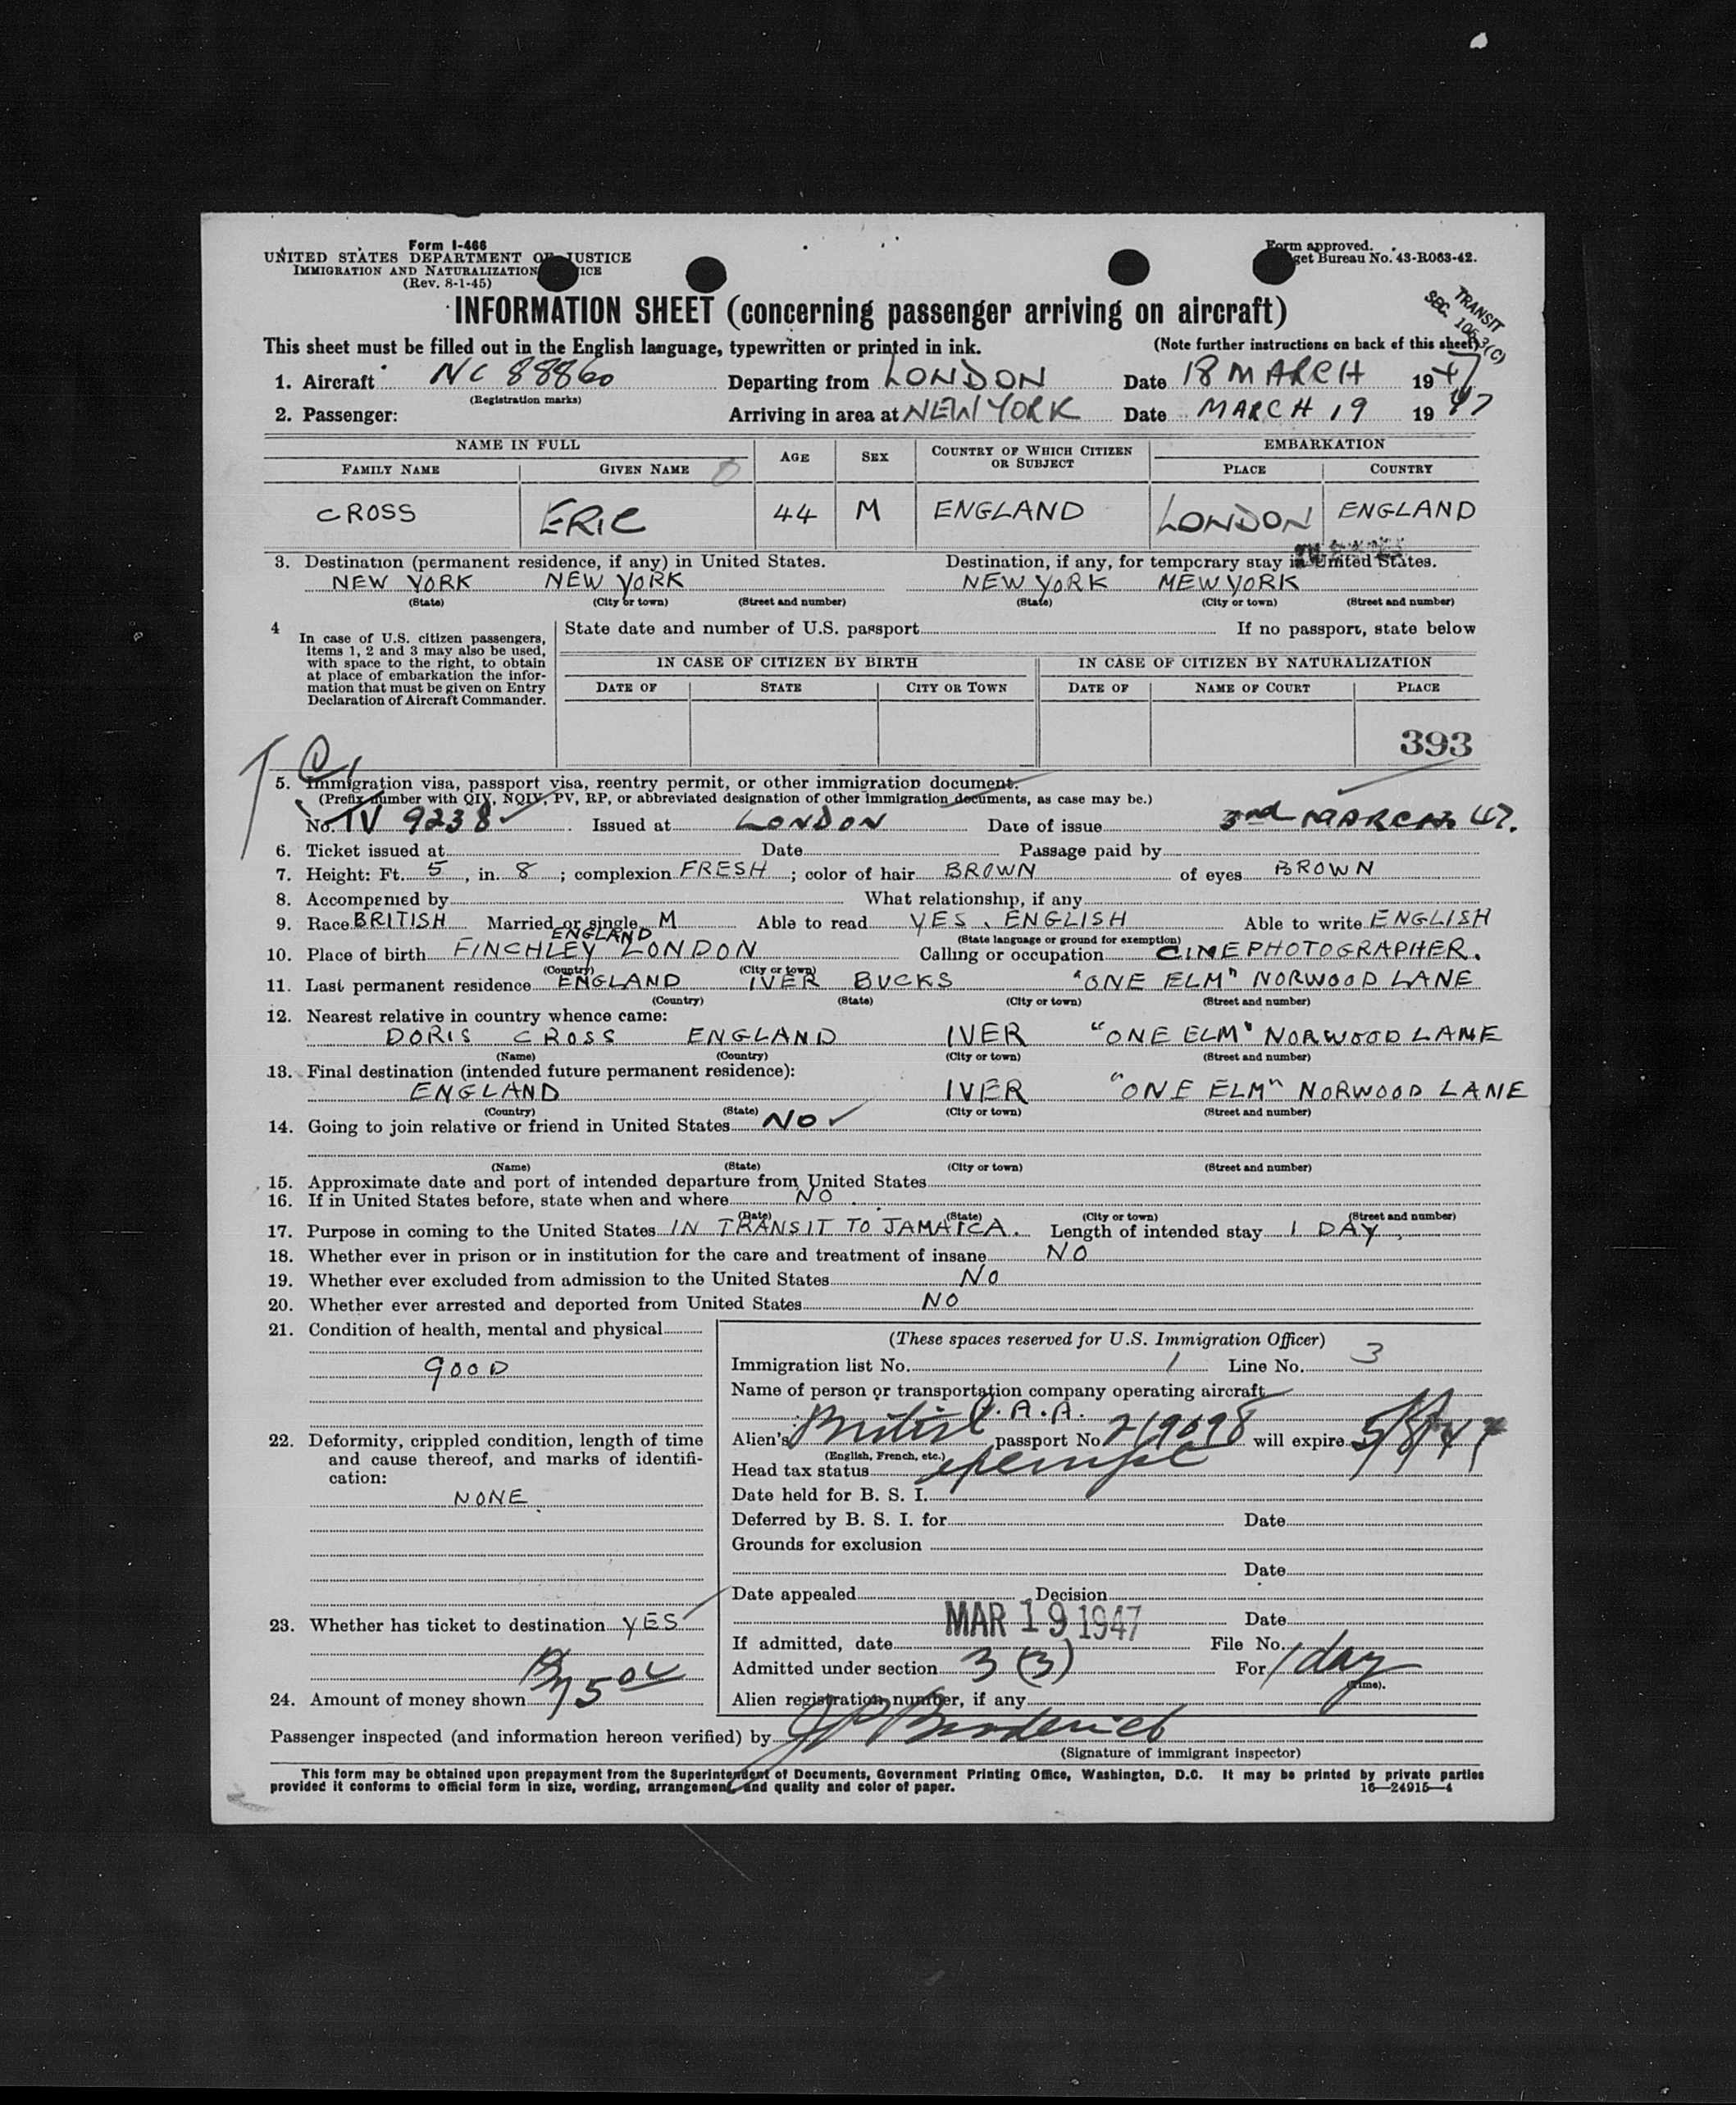 Form I-466
UNITED STATES DEPARTMENT OF JUSTICE
IMMIGRATION AND NATURALIZATION
(Rev. 8-1-45)
Form approved.
get Bureau No. 43-R063-42.
INFORMATION SHEET (concerning passenger arriving on aircraft)
TRANSIT
SEC. 105.3(C)
This sheet must be filled out in the English language, typewritten or printed in ink. (Note further instructions on back of this sheet)
1. Aircraft NC 88860 Departing from LONDON Date 18 MARCH 1947
(Registration marks)
2. Passenger: Arriving in area at NEW YORK Date MARCH 19 1947
NAME IN FULL AGE SEX COUNTRY OF WHICH CITIZEN OR SUBJECT EMBARKATION
FAMILY NAME GIVEN NAME PLACE COUNTRY
CROSS ERIC 44 M ENGLAND LONDON ENGLAND
3. Destination (permanent residence, if any) in United States. Destination, if any, for temporary stay in United States.
NEW YORK NEW YORK NEW YORK MEW YORK
(State) (City or town) (Street and number) (State) (City or town) (Street and number)
4 In case of U.S. citizen passengers, items 1, 2 and 3 may also be used, with space to the right, to obtain at place of embarkation the information that must be given on Entry Declaration of Aircraft Commander.
State date and number of U.S. passport If no passport, state below
IN CASE OF CITIZEN BY BIRTH IN CASE OF CITIZEN BY NATURALIZATION
DATE OF STATE CITY OR TOWN DATE OF NAME OF COURT PLACE
393
5. Immigration visa, passport visa, reentry permit, or other immigration document.
(Prefix number with QIV, NQIV, PV, RP, or abbreviated designation of other immigration documents, as case may be.)
No. TV 9238 Issued at LONDON Date of issue 3rd MARCH 47.
6. Ticket issued at Date Passage paid by
7. Height: Ft. 5, in. 8; complexion FRESH; color of hair BROWN of eyes BROWN
8. Accompenied by What relationship, if any
9. Race BRITISH Married or single M Able to read YES. ENGLISH Able to write ENGLISH
ENGLAND (State language or ground for exemption)
10. Place of birth FINCHLEY LONDON Calling or occupation CINEPHOTOGRAPHER.
(Country) (City or town)
11. Last permanent residence ENGLAND IVER BUCKS "ONE ELM" NORWOOD LANE
(Country) (State) (City or town) (Street and number)
12. Nearest relative in country whence came:
DORIS CROSS ENGLAND IVER "ONE ELM" NORWOOD LANE
(Name) (Country) (City or town) (Street and number)
13. Final destination (intended future permanent residence):
ENGLAND IVER "ONE ELM" NORWOOD LANE
(Country) (State) (City or town) (Street and number)
14. Going to join relative or friend in United States NO
(Name) (State) (City or town) (Street and number)
15. Approximate date and port of intended departure from United States
16. If in United States before, state when and where NO.
(Date) (State) (City or town) (Street and number)
17. Purpose in coming to the United States IN TRANSIT TO JAMAICA. Length of intended stay 1 DAY
18. Whether ever in prison or in institution for the care and treatment of insane NO
19. Whether ever excluded from admission to the United States NO
20. Whether ever arrested and deported from United States NO
21. Condition of health, mental and physical
GOOD
22. Deformity, crippled condition, length of time and cause thereof, and marks of identification:
NONE
23. Whether has ticket to destination YES
24. Amount of money shown
(These spaces reserved for U.S. Immigration Officer)
Immigration list No. 1 Line No. 3
Name of person or transportation company operating aircraft
P.A.A.
Alien's British passport No. 219098 will expire
(English, French, etc.)
Head tax status exempt
Date held for B. S. I.
Deferred by B. S. I. for Date
Grounds for exclusion
Date
Date appealed Decision
MAR 19 1947 Date
If admitted, date File No.
Admitted under section 3 (3) For 1 day
(Time).
Alien registration number, if any
Passenger inspected (and information hereon verified) by JP Broderick
(Signature of immigrant inspector)
This form may be obtained upon prepayment from the Superintendent of Documents, Government Printing Office, Washington, D.C. It may be printed by private parties
provided it conforms to official form in size, wording, arrangement, and quality and color of paper. 16—24915-4